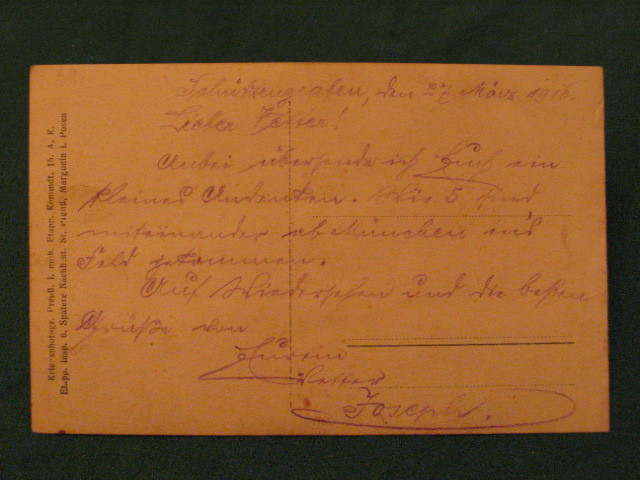 Schützengraben, den 27. März 1916.
Lieber Vetter!
Anbei übersende ich Euch ein
kleines Andenken. Wir 5 sind
miteinander ab München ins
Feld gekommen.
Auf Wiedersehen und die besten
Grüße von
Eurem
Vetter
Joseph.
Kriegsphotogr. Preuß, I. mob. Etapp. Kommdt. 15. A. K.
Etapp. Insp. 6. Spätere Nachbest. St. Preuß, Margonin i. Posen